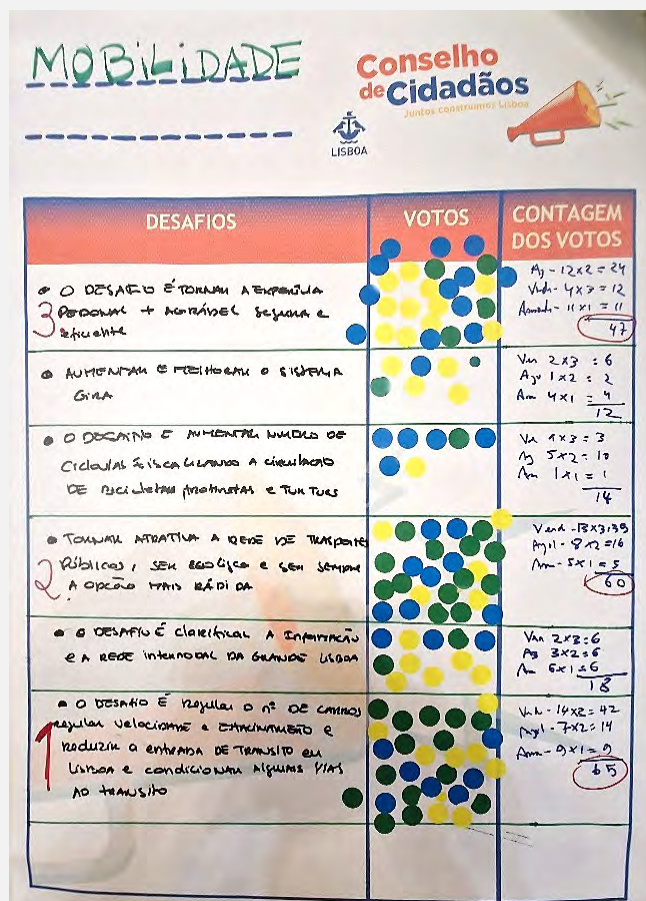 MOBILIDADE
Conselho
de Cidadãos
Juntos construímos Lisboa
LISBOA
DESAFIOS
VOTOS
CONTAGEM
DOS VOTOS
• O DESAFIO É TORNAR A EXPERIÊNCIA
3 PEDONAL + AGRADÁVEL SEGURA e
eficiente
Az - 12x2 = 24
Verde - 4x3 = 12
Amarelo - 11x1 = 11
47
• AUMENTAR E MELHORAR O SISTEMA
GIRA
Ver 2x3 = 6
Azul 1x2 = 2
Am 4x1 = 4
12
• O DESAFIO É AUMENTAR NUMERO DE
Ciclovias fiscalizando A circulação
DE bicicletas trotinetas e TUK TUKS
Ve 1x3 = 3
Az 5x2 = 10
Am 1x1 = 1
14
• TORNAR ATRATIVA A REDE DE TRASPORTES
2 Públicos, SER ecológico e SER SEMPRE
A OPÇÃO MAIS RÁPIDA
Verd - 13x3=39
Azul - 8x2=16
Am - 5x1=5
60
• O DESAFIO É clarificar A INFORMAÇÃO
e A REDE intermodal DA GRANDE LISBOA
Ver 2x3=6
Az 3x2=6
Am 6x1=6
18
• O DESAFIO É Regular O nº DE CARROS
1 regular velocidade e ESTACIONAMENTO e
Reduzir a entrada DE TRANSITO em
Lisboa e condicionar algumas VIAS
AO TRANSITO
Azul - 7x2=14
Am - 9x1=9
65